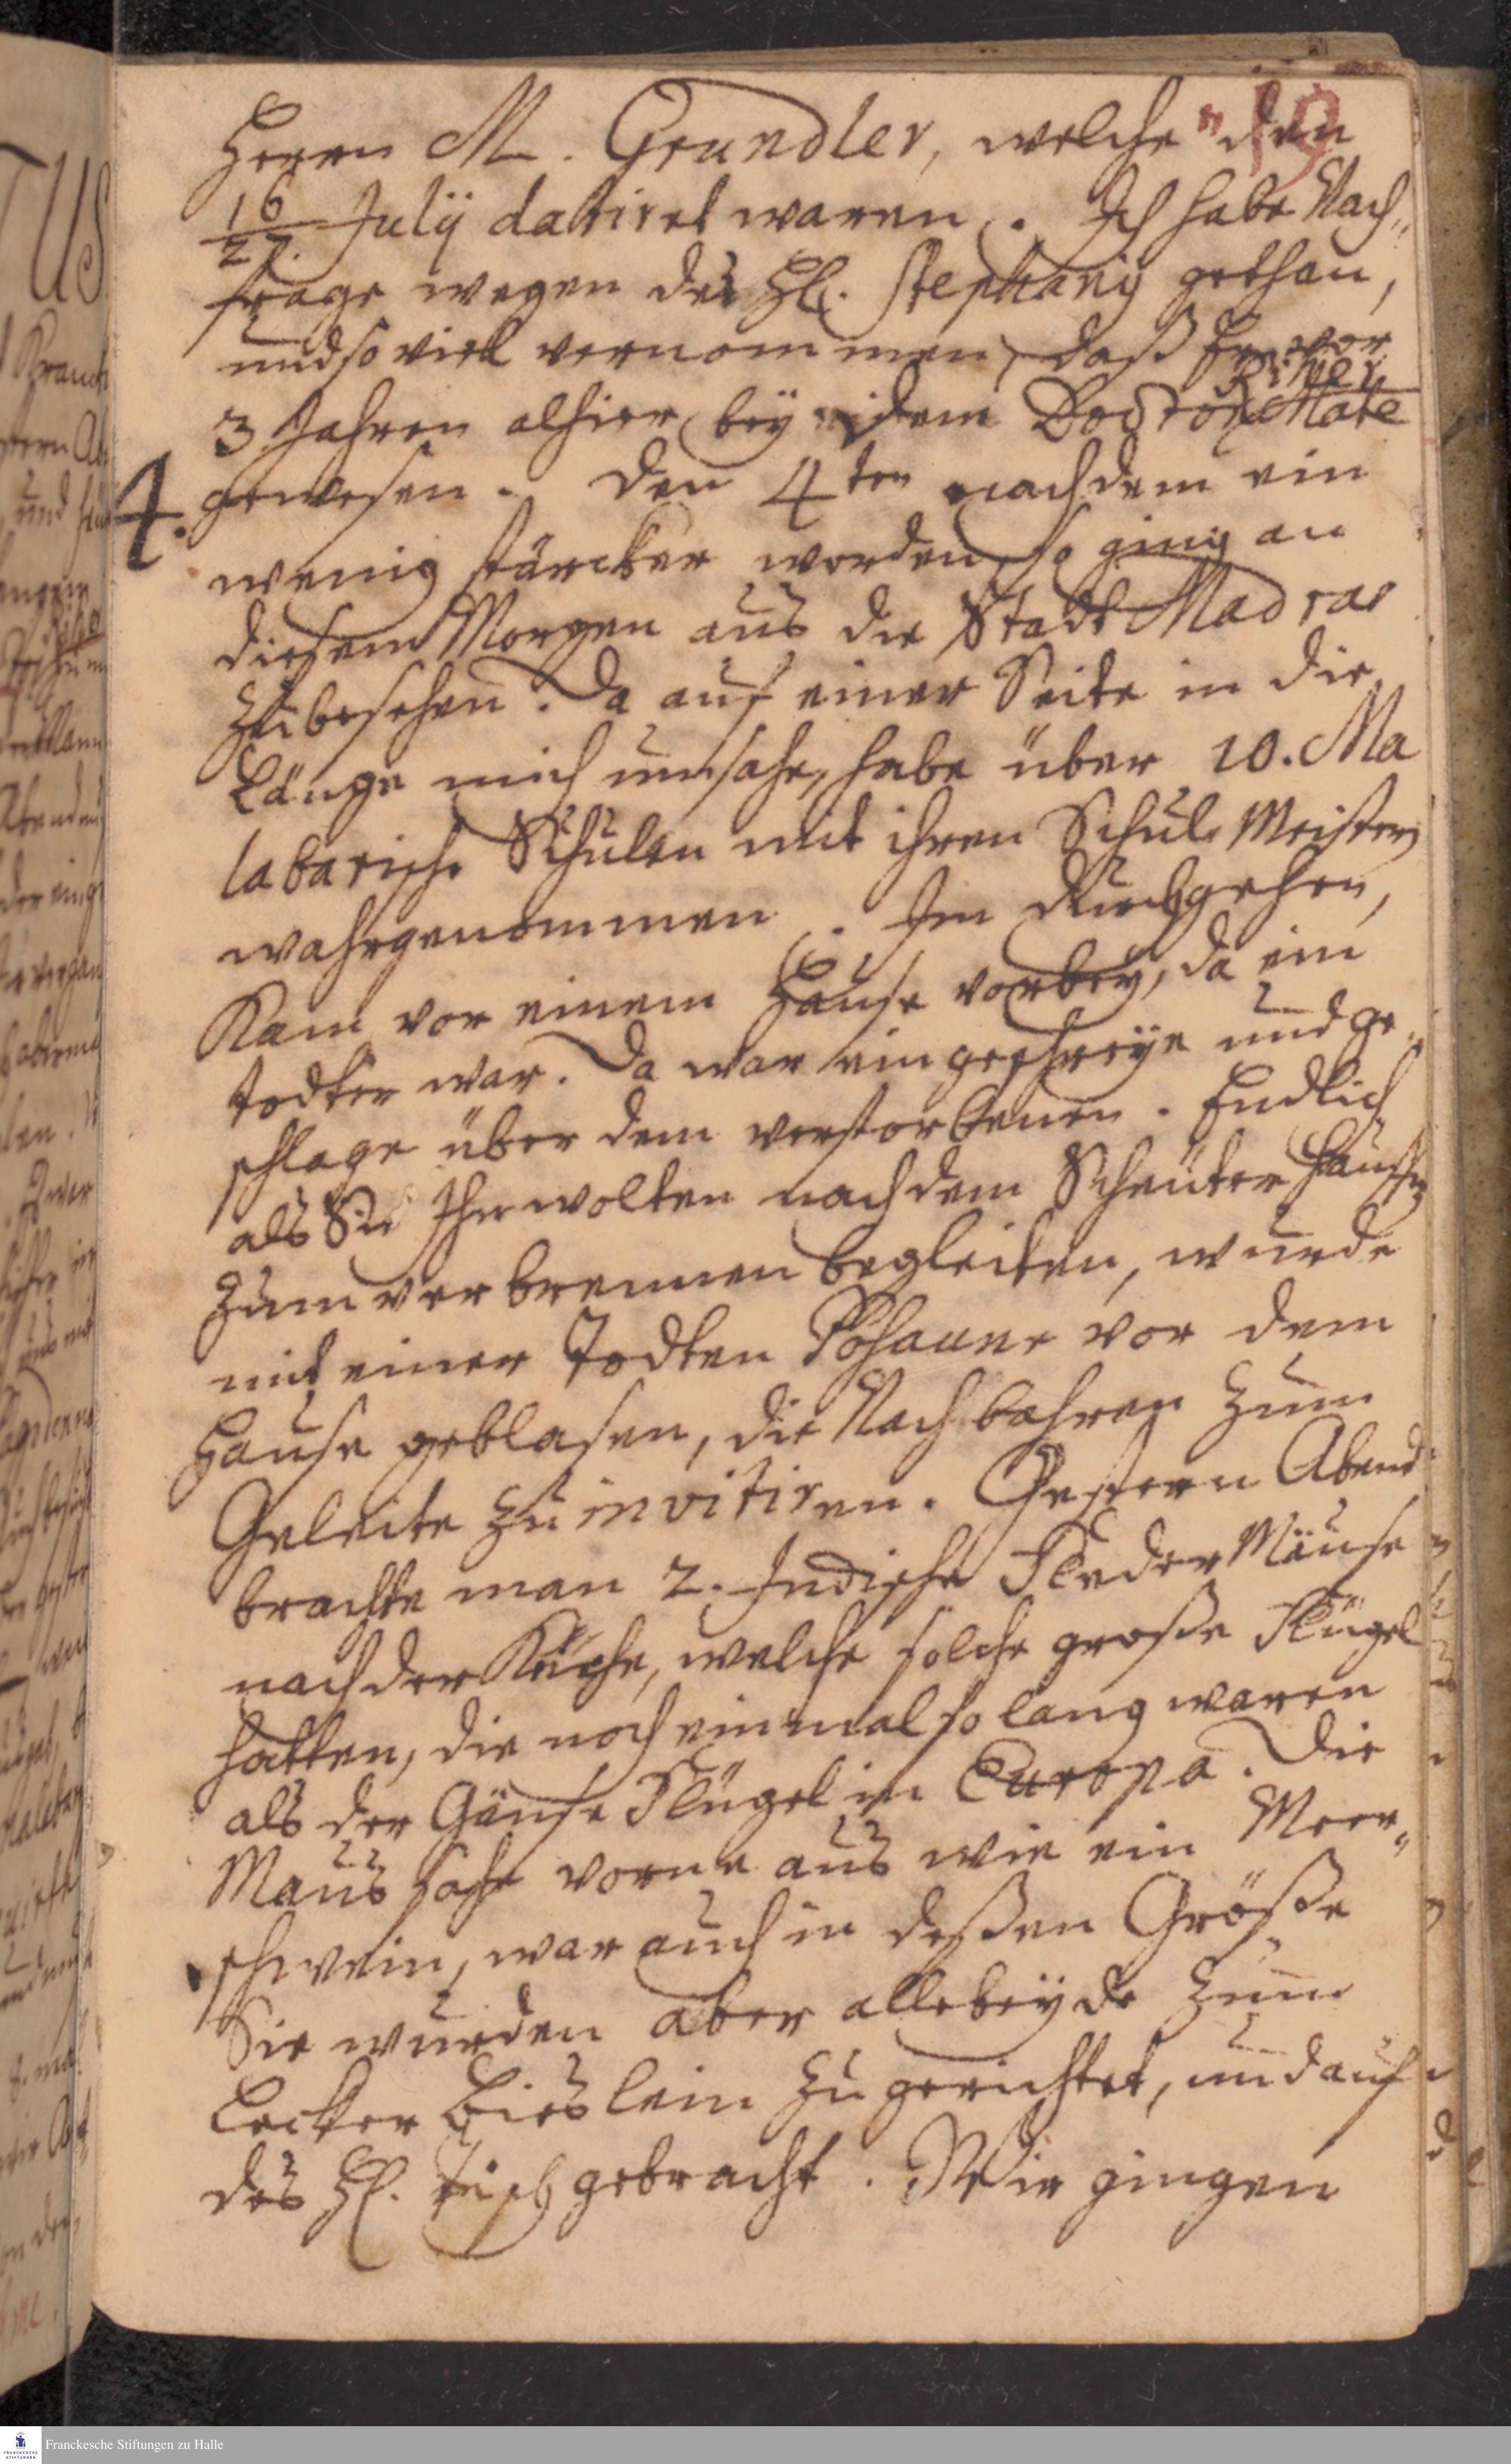 19
Herrn M. Grundler, welche den
16/27. Julij datiret waren. Ich habe Nach„
frage wegen des Hl. Stephanij gethan,
und so viel vernommen, daß Er vor
3 Jahren alhier bey dem Doctor Mate
gewesen. Den 4ten nachdem ein
4.
wenig stärcker worden, so ging an
diesem Morgen aus die Stadt Madras
zu besehen. Da auf einer Seite in die
Länge mich umsahe, habe über 10. Ma
labarische Schulen mit ihren Schul Meistern
wahrgenommen. Im durchgehen,
Kam vor einem Hause vorbey, da ein
todter war. Da war ein geschreye und ge„
schlage über dem verstorbenen. Endlich
als Sie Ihn wolten nach dem Scheuter hauffen
zum verbrennen begleiten, wurde
mit einer Todten Posaune vor dem
Hause geblasen, die Nachbahren zum
Geleite zu invitiren. Gestern Abend
brachte man 2. Indische Fleder Mäuse
nach der Küche, welche solche große Flügel
hatten, die noch einmal so lang waren
als der Gänse Flügel in Europa. Die
Maus sahe vorne aus wie ein Meer„
schwein, war auch in deßen Größe
Sie wurden aber alle beyde zum
Lecker Bislein zu gerichtet, und auf
des Hl. Tisch gebracht. Wir gingen
Franckesche Stiftungen zu Halle